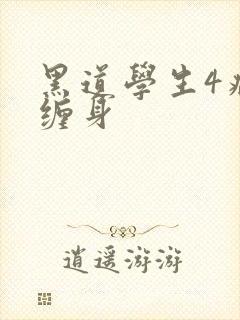 黑道學生4
缠身
逍遥游游